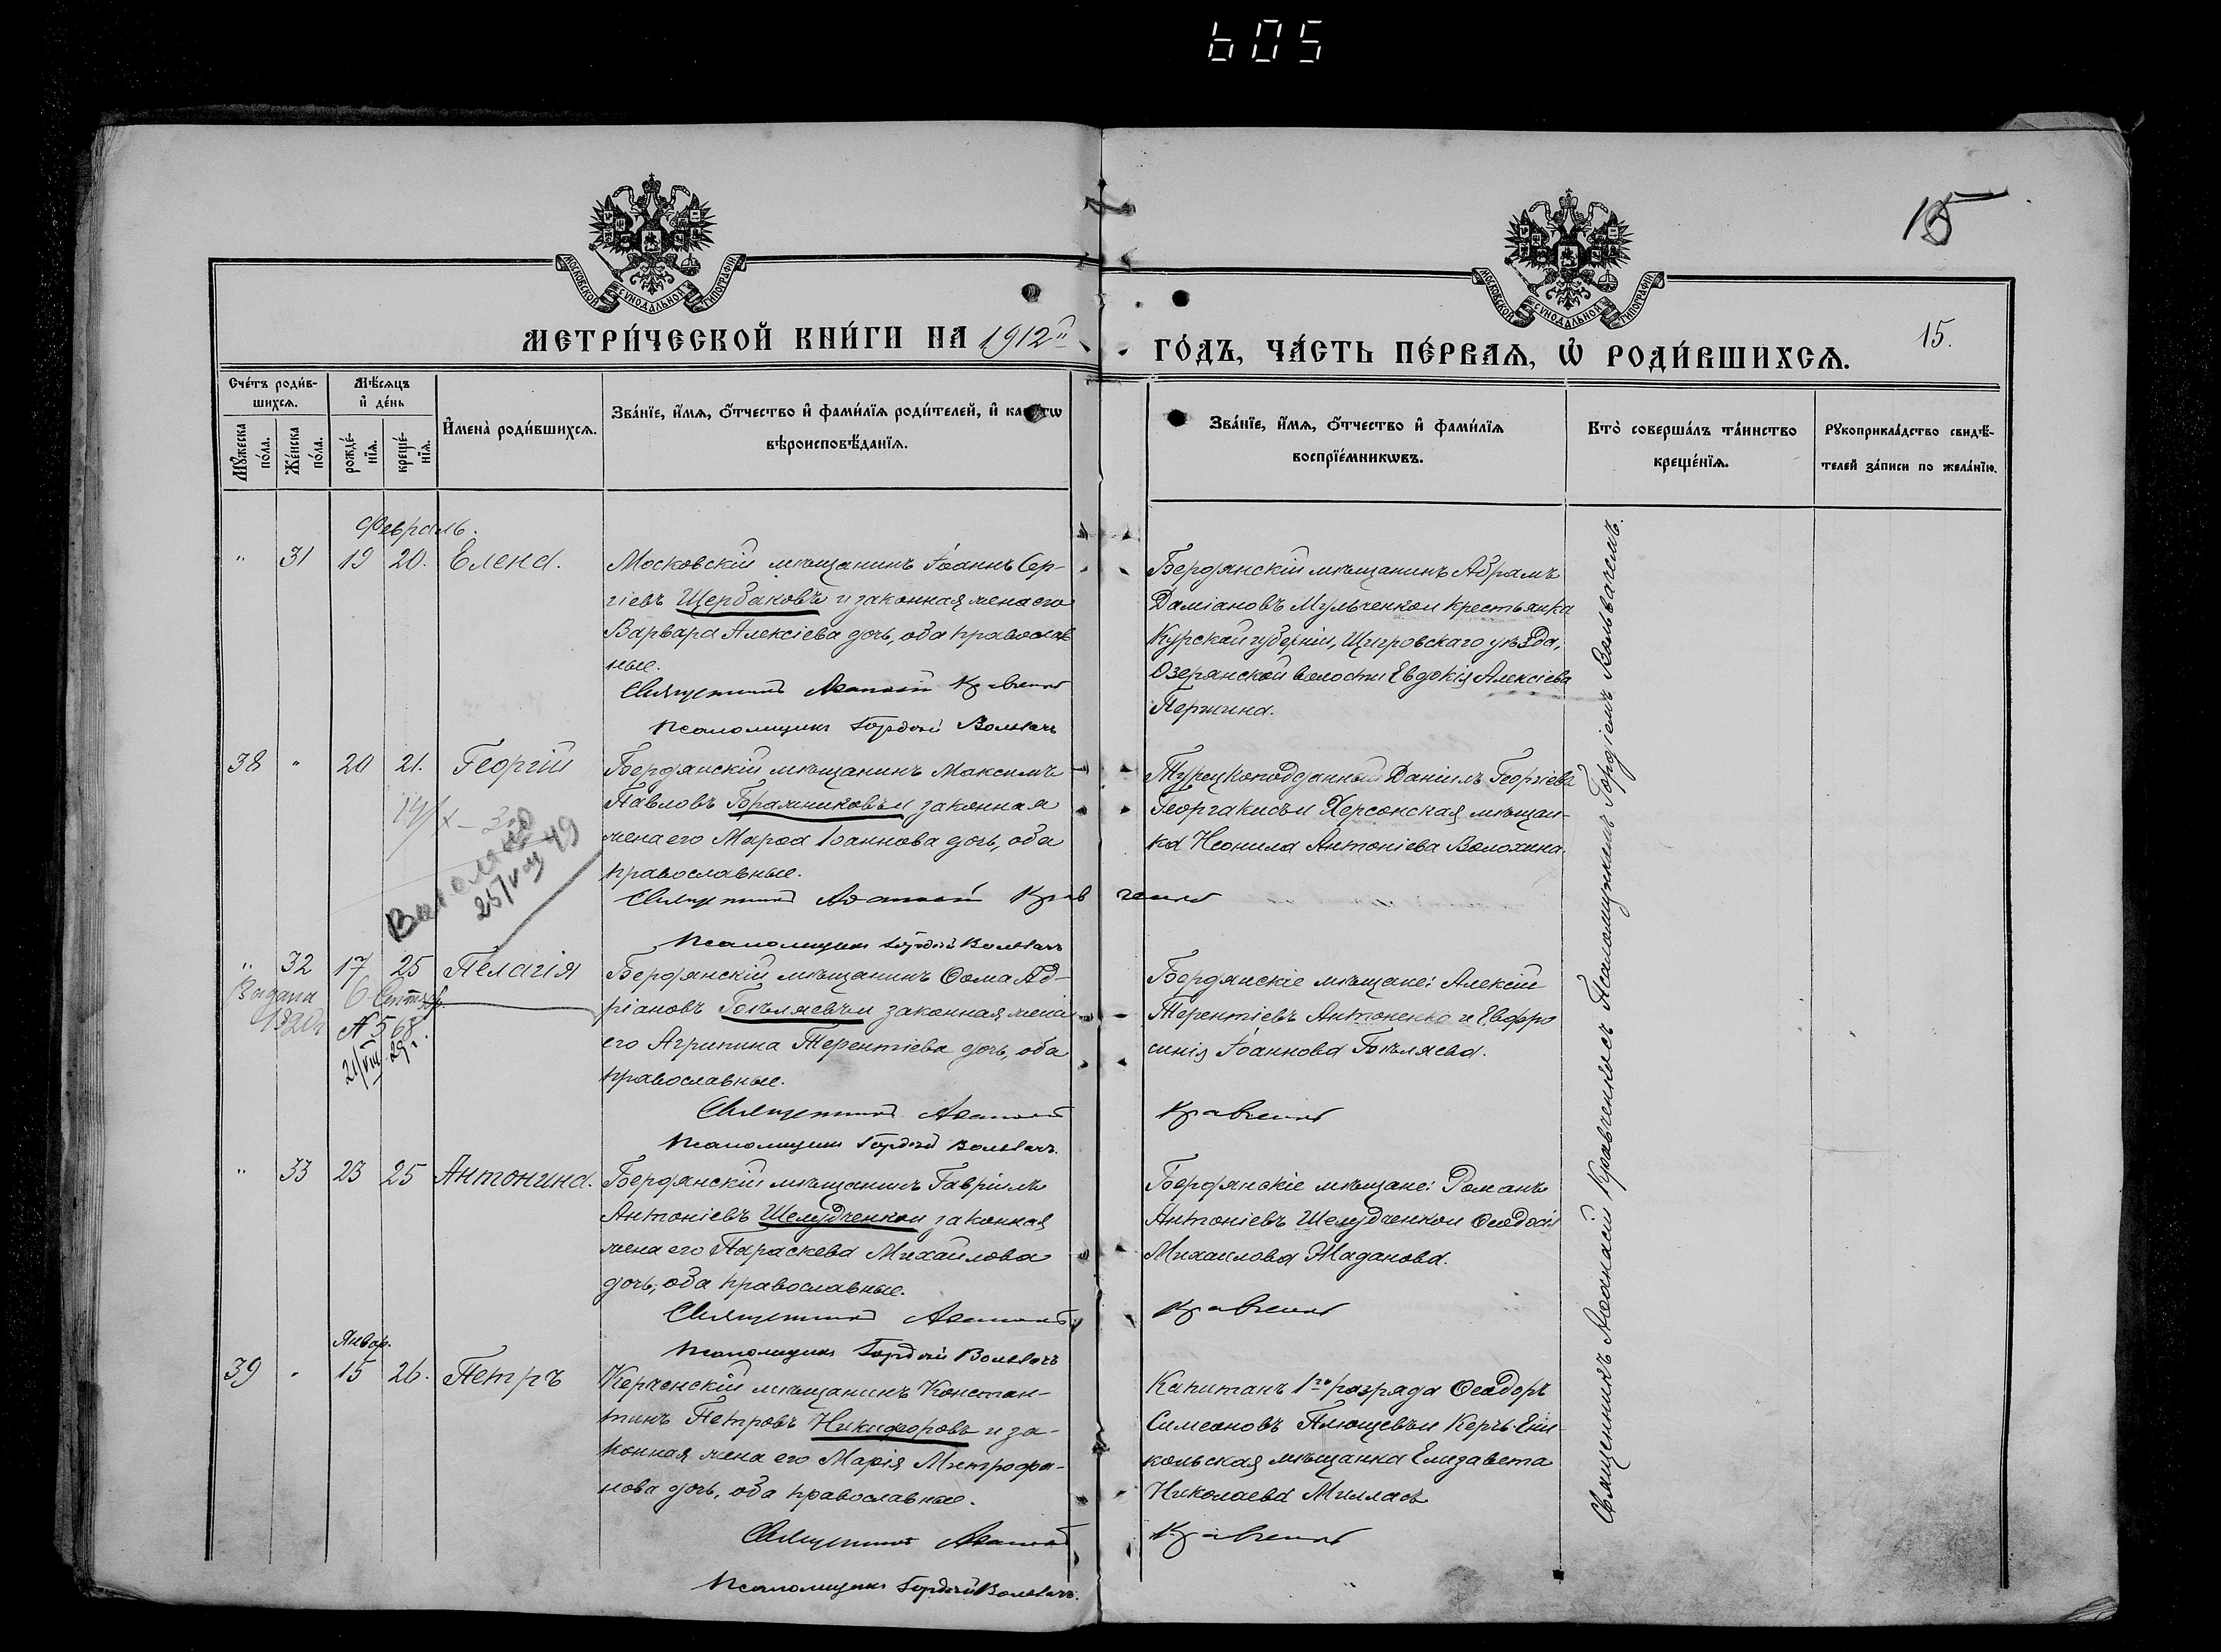 605
15
МОСКОВСКОЙ СѴНОДАЛЬНОЙ ТИПОГРАФІИ
МОСКОВСКОЙ СѴНОДАЛЬНОЙ ТИПОГРАФІИ
МЕТРИ́ЧЕСКОЙ КНИ́ГИ НА 1912й
ГО́ДЪ, ЧА́СТЬ ПЕ́РВАѦ, Ѿ РОДИ́ВШИХСѦ.
15.
Сче́тъ роди́в-
шихсѧ.
Мꙋ́жеска по́ла.
Же́нска по́ла.
Мѣ́сѧцъ
и҆ де́нь
рожде́-нїѧ.
креще́-нїѧ.
И҆мена̀ роди́вшихсѧ.
Зва́нїе, и҆́мѧ, ѻ҆́тчество и҆ фами́лїѧ роди́телей, и҆ како́гѡ
вѣроисповѣ́данїѧ.
Зва́нїе, и҆́мѧ, ѻ҆́тчество и҆ фами́лїѧ
воспрїе́мникѡвъ.
Кто̀ соверша́лъ та́инство
креще́нїѧ.
Рꙋкоприкла́дство свидѣ́-
телей за́писи по жела́нїю.
Февраль.
" 31 19 20. Елена.
Московскій мѣщанинъ Іоаннъ Сер-
гіевъ Щербаковъ и законная жена его
Варвара Алексіева дочь, оба православ
ные.
Священникъ Аѳанасій Кравченко
Псаломщикъ Гордій Вольвачъ
Бердянскій мѣщанинъ Абрамъ
Даміановъ Мульченко и крестьянка
Курской губерніи, Щигровскаго уѣзда,
Озерянской волости Евдокія Алексіева
38 " 20 21. Георгій
Бердянскій мѣщанинъ Максимъ
Павловъ Бражниковъ и законная
жена его Марѳа Іоаннова дочь, оба
православные.
Священникъ Аѳанасій Кравченко
Псаломщикъ Гордій Вольвачъ
Турецкоподданный Даніилъ Георгіевъ
Георгакисъ и Херсонская мѣщан-
ка Неонила Антоніева Волохина.
25/VIII 49
" 32 17 25 Пелагія
Выдана 6 Сентяб.
1920 г. № 568.
21/VIII 29 г.
Бердянскій мѣщанинъ Ѳома Ад-
ріановъ Бѣляевъ и законная жена
его Агрипина Терентіева дочь, оба
православные.
Священникъ Аѳанасій Кравченко
Псаломщикъ Гордій Вольвачъ.
Бердянскіе мѣщане: Алексій
Терентіевъ Антоненко и Евфро
синія Іоаннова Бѣляева.
" 33 23 25 Антонина.
Бердянскій мѣщанинъ Гавріилъ
Антоніевъ Шелудченко и законная
жена его Параскева Михаилова
дочь, оба православные.
Священникъ Аѳанасій Кравченко
Псаломщикъ Гордій Вольвачъ
Бердянскіе мѣщане: Романъ
Антоніевъ Шелудченко и Ѳеодосія
Михаилова Жаданова.
Январ.
39 " 15 26. Петръ
Керченскій мѣщанинъ Констан-
тинъ Петровъ Никифоровъ и за-
конная жена его Марія Митрофа-
нова дочь, оба православные.
Священникъ Аѳанасій Кравченко
Псаломщикъ Гордій Вольвачъ.
Капитанъ 1го разряда Ѳеодоръ
Симеоновъ Плющевъ и Керчь-Ени-
кольская мѣщанка Елизавета
Николаева Миллась
Священникъ Аѳанасій Кравченко съ Псаломщикомъ Гордіемъ Вольвачемъ.